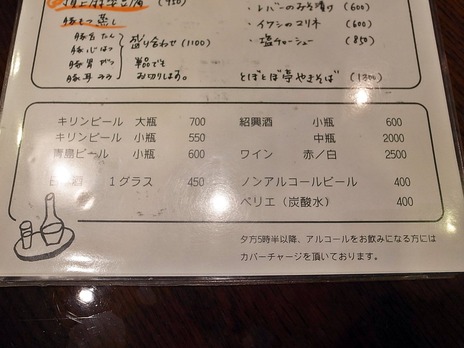 (450)
豚もつ蒸し
豚舌 たん
豚心 はつ
豚胃 がつ
豚耳 みみ
盛り合わせ (1100)
単品でも
お切りします。
・レバーのみそ漬け (600)
・イワシのマリネ (600)
・塩チャーシュー (850)
とぼとぼ亭やきそば
キリンビール 大瓶 700
キリンビール 小瓶 550
青島ビール 小瓶 600
日本酒 1グラス 450
紹興酒 小瓶 600
中瓶 2000
ワイン 赤/白 2500
ノンアルコールビール 400
ペリエ(炭酸水) 400
夕方5時半以降、アルコールをお飲みになる方には
カバーチャージを頂いております。